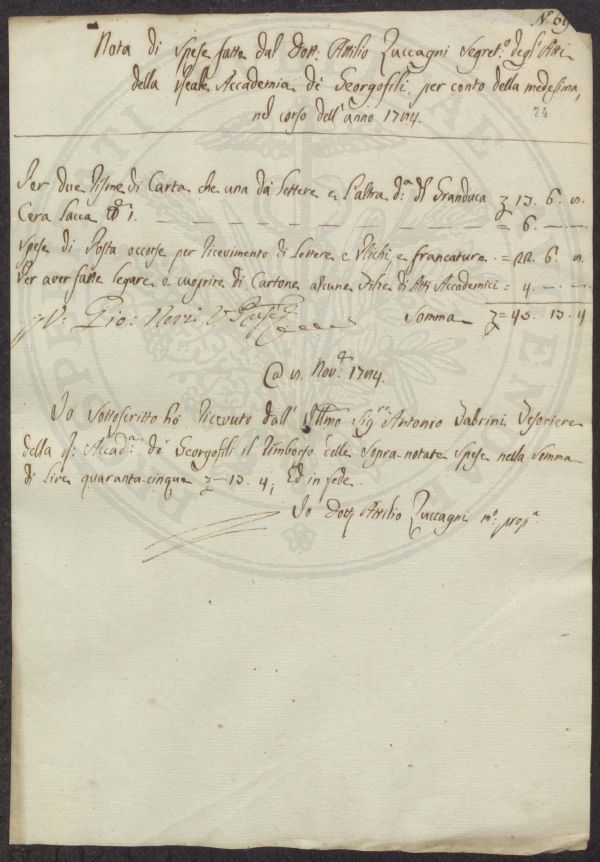 Nº 69
Nota di Spese fatte dal Dott. Attilio Zuccagni Segret.º degl'Atti
della Reale Accademia de' Georgofili per conto della medesima,
nel corso dell'anno 1794.
74
Per due Risme di Carta che una da Lettere e l'altra d.ª del Granduca 13. 6.
Cera Lacca 1. = 6. —
Spese di Posta occorse per ricevimento di Lettere e Plichi, e francature = 22. 6.
Per aver fatte legare e cuoprire di Cartone alcune Filze di Atti Accademici = 4. — —
V. Gio: Neri Somma = 45. 13. 4
Nov. 1794.
Io Sottoscritto hò ricevuto dall' Illmo Sig. Antonio Fabrini Tesoriere
della R. Accad.ª de' Georgofili il rimborso delle sopra notate Spese nella Somma
di Lire quaranta cinque — 13. 4; Ed in fede
Io Dott. Attilio Zuccagni m.º prop.ª
PROSPERITATI PUBLICAE AUGENDAE